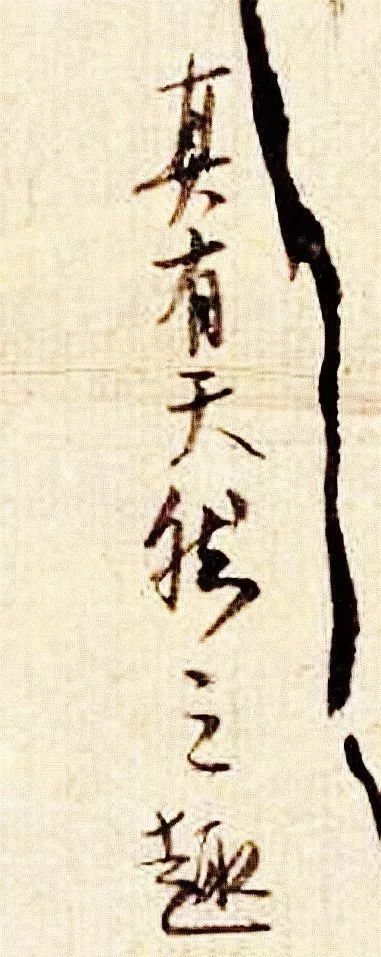 真有天然之趣